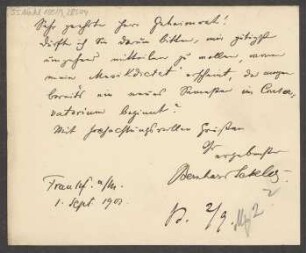 Sehr geehrter Herr Geheimrat!
Dürfte ich Sie darum bitten, mir gütigst
mitteilen zu wollen, wann
mein Musikdictat erscheint, da morgen
bereits ein neues Semester im Conser-
vatorium beginnt?
Mit hochachtungsvollen Grüßen
Ihr ergebenster
Bernhard Sekles
Frankf. a/M.
1. Sept 1901
B. 2/9.